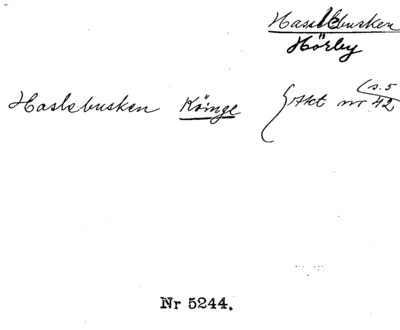 Hasslebusken
Hörby
(s. 5
Haslebusken Köinge Akt nr 42
Nr 5244.